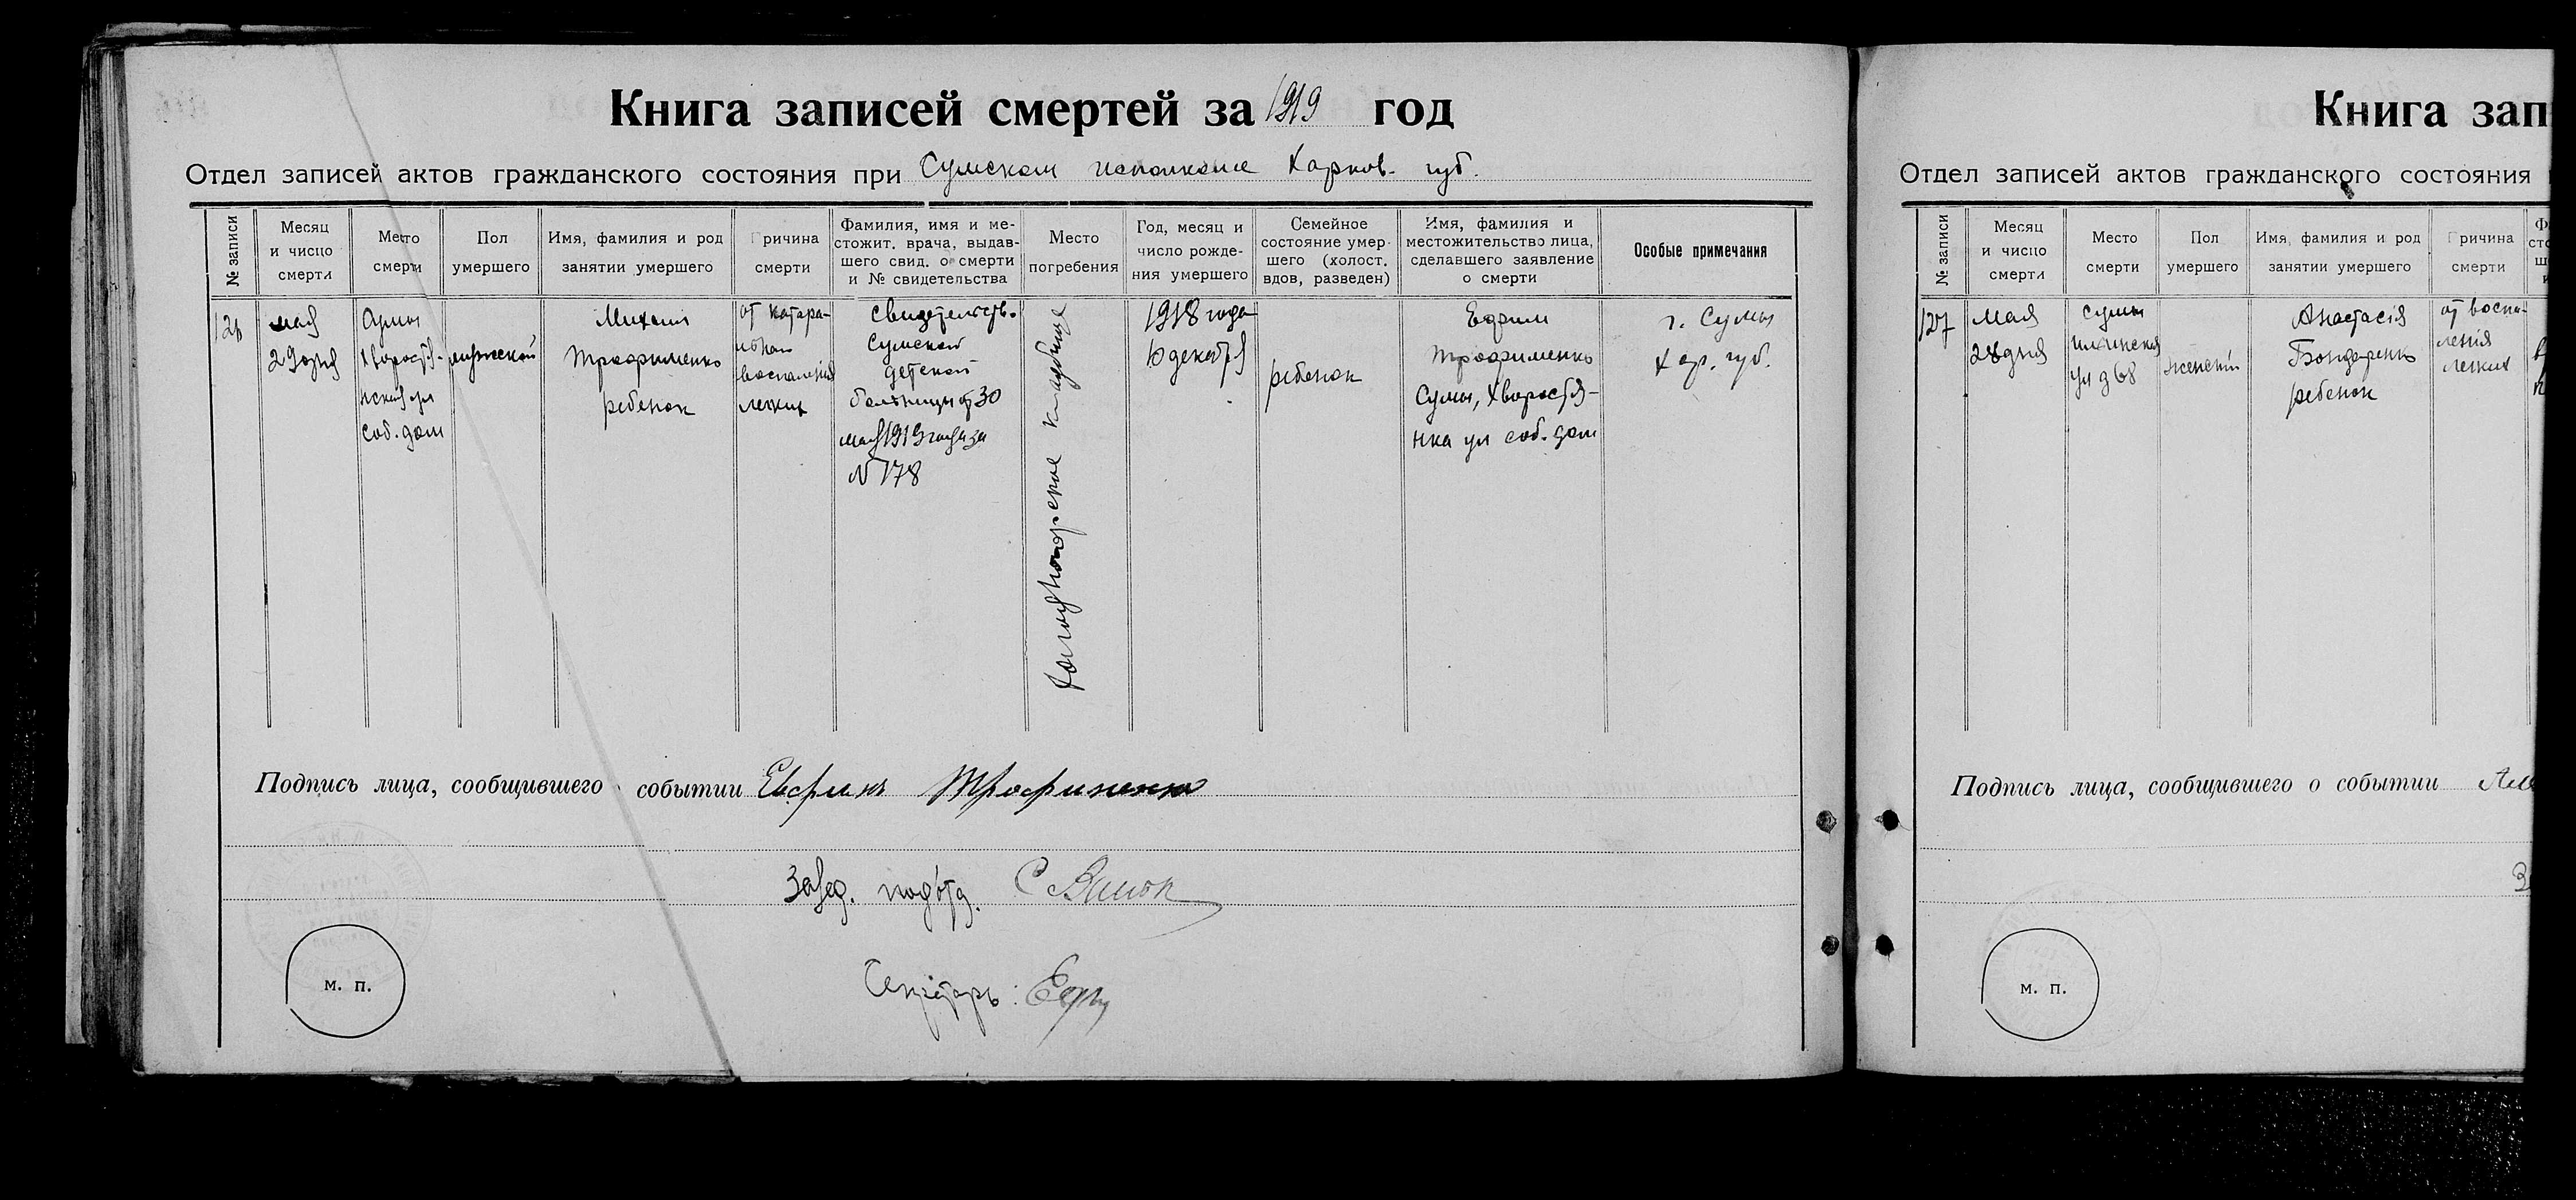 Книга записей смертей за 1919 год
Отдел записей актов гражданского состояния при Сумском исполкоме Харков. губ.
№ записи
Месяц
и число
смерти
Место
смерти
Пол
умершего
Имя, фамилия и род
занятии умершего
Причина
смерти
Фамилия, имя и ме-
стожит. врача, выдав-
шего свид. о смерти
и № свидетельства
Место
погребения
Год, месяц и
число рожде-
ния умершего
Семейное
состояние умер-
шего (холост.
вдов, разведен)
Имя, фамилия и
местожительство лица,
сделавшего заявление
о смерти
Особые примечания
126
мая
29 дня
Сумы
Хворостян-
ская ул
соб. дом
мужской
Михаил
Трофименко
ребенок
от катара-
льного
воспаления
легких
Свидетельств.
Сумской
детской
больницы от 30
мая 1919 года за
№ 178
кладбище
1918 года
10 декабря
ребенок
Ефрем
Трофименко
Сумы, Хворостя-
нка ул соб. дом
г. Сумы
Хар. губ.
Подпись лица, сообщившего событии Трофименко
Завед. подотд.
Секретарь:
м. п.
Книга зап
Отдел записей актов гражданского состояния
№ записи
Месяц
и число
смерти
Место
смерти
Пол
умершего
Имя, фамилия и род
занятии умершего
Причина
смерти
127
мая
28 дня
Сумы
Ильинская
ул д 68
женский
Анастасія
Бондаренко
ребенок
от воспа-
ленія
легких
Подпись лица, сообщившего о событии
м. п.